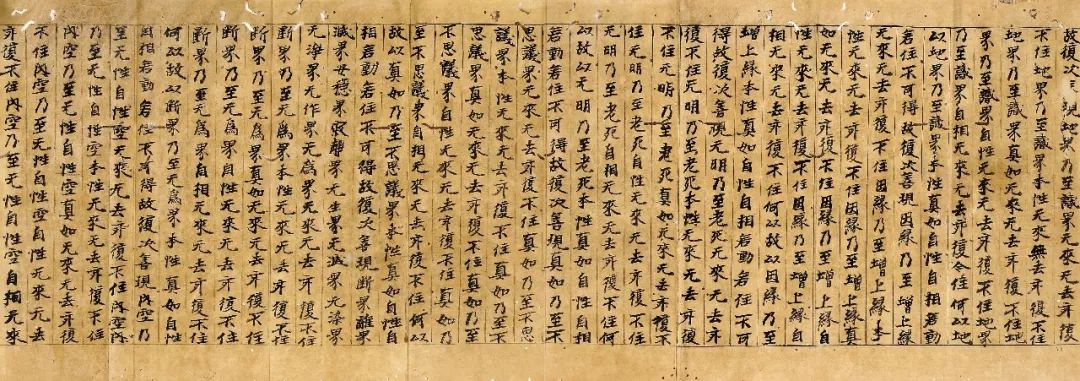 故復次善現地界乃至識界无來无去亦復
不住地界乃至識界本性无來無去亦復不住
地界乃至識界真如无來无去亦復不住地
界乃至識界自性无來无去亦復不住地界
乃至識界自相无來无去亦復不住何以故
以地界乃至識界本性真如自性自相若動
若住不可得故復次善現因緣乃至增上緣
无來无去亦復不住因緣乃至增上緣本
性无來无去亦復不住因緣乃至增上緣真
如无來无去亦復不住因緣乃至增上緣自
性无來无去亦復不住因緣乃至增上緣自
相无來无去亦復不住何以故以因緣乃至
增上緣本性真如自性自相若動若住不可
得故復次善現无明乃至老死无來无去亦
復不住无明乃至老死本性无來无去亦復
不住无明乃至老死真如无來无去亦復不
住无明乃至老死自性无來无去亦復不住
无明乃至老死自相无來无去亦復不住何
以故以无明乃至老死本性真如自性自相
若動若住不可得故復次善現真如乃至不
思議界无來无去亦復不住真如乃至不思
議界本性无來无去亦復不住真如乃至不
思議界真如无來无去亦復不住真如乃至
不思議界自性无來无去亦復不住真如乃
至不思議界自相无來无去亦復不住何以
故以真如乃至不思議界本性真如自性自
相若動若住不可得故復次善現斷界離界
滅界安隱界寂靜界无生界无滅界无染界
无淨界无作界无為界无來无去亦復不住
斷界乃至无為界本性无來无去亦復不住
斷界乃至无為界真如无來无去亦復不住
斷界乃至无為界自性无來无去亦復不住
斷界乃至无為界自相无來无去亦復不住
何以故以斷界乃至无為界本性真如自性
自相若動若住不可得故復次善現內空乃
至无性自性空无來无去亦復不住內空
乃至无性自性空本性无來无去亦復不住
內空乃至无性自性空真如无來无去亦復
不住內空乃至无性自性空自性无來无去
亦復不住內空乃至无性自性空自相无來